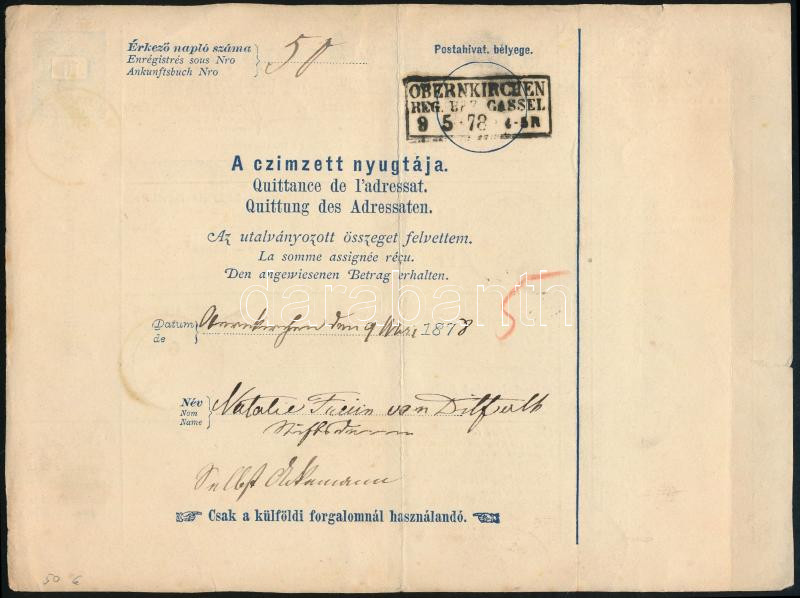 Érkező napló száma
Enrégistrés sous Nro
Ankunftsbuch Nro
50
Postahivat. bélyege.
OBERNKIRCHEN
REG. BEZ. CASSEL
9 5 78 4-5N
A czimzett nyugtája.
Quittance de l'adressat.
Quittung des Adressaten.
Az utalványozott összeget felvettem.
La somme assignée réçu.
Den angewiesenen Betrag erhalten.
darabanth
5
Datum
de
Obernkirchen den 9 Mai 1878
Név
Nom
Name
Natalie von Ditfurth
Stiftsdame
Selbst
Csak a külföldi forgalomnál használandó.
50